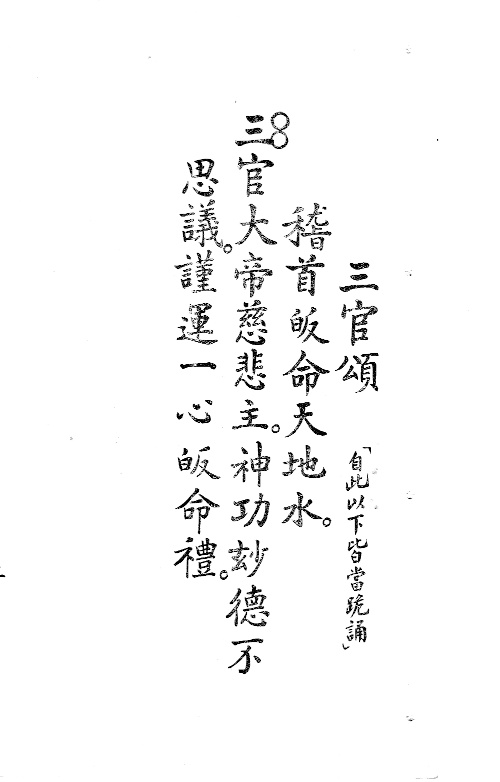 三官頌「自此以下皆當跪誦」
稽首皈命天地水。
三官大帝慈悲主。神功玅德不
思議。謹運一心皈命禮。